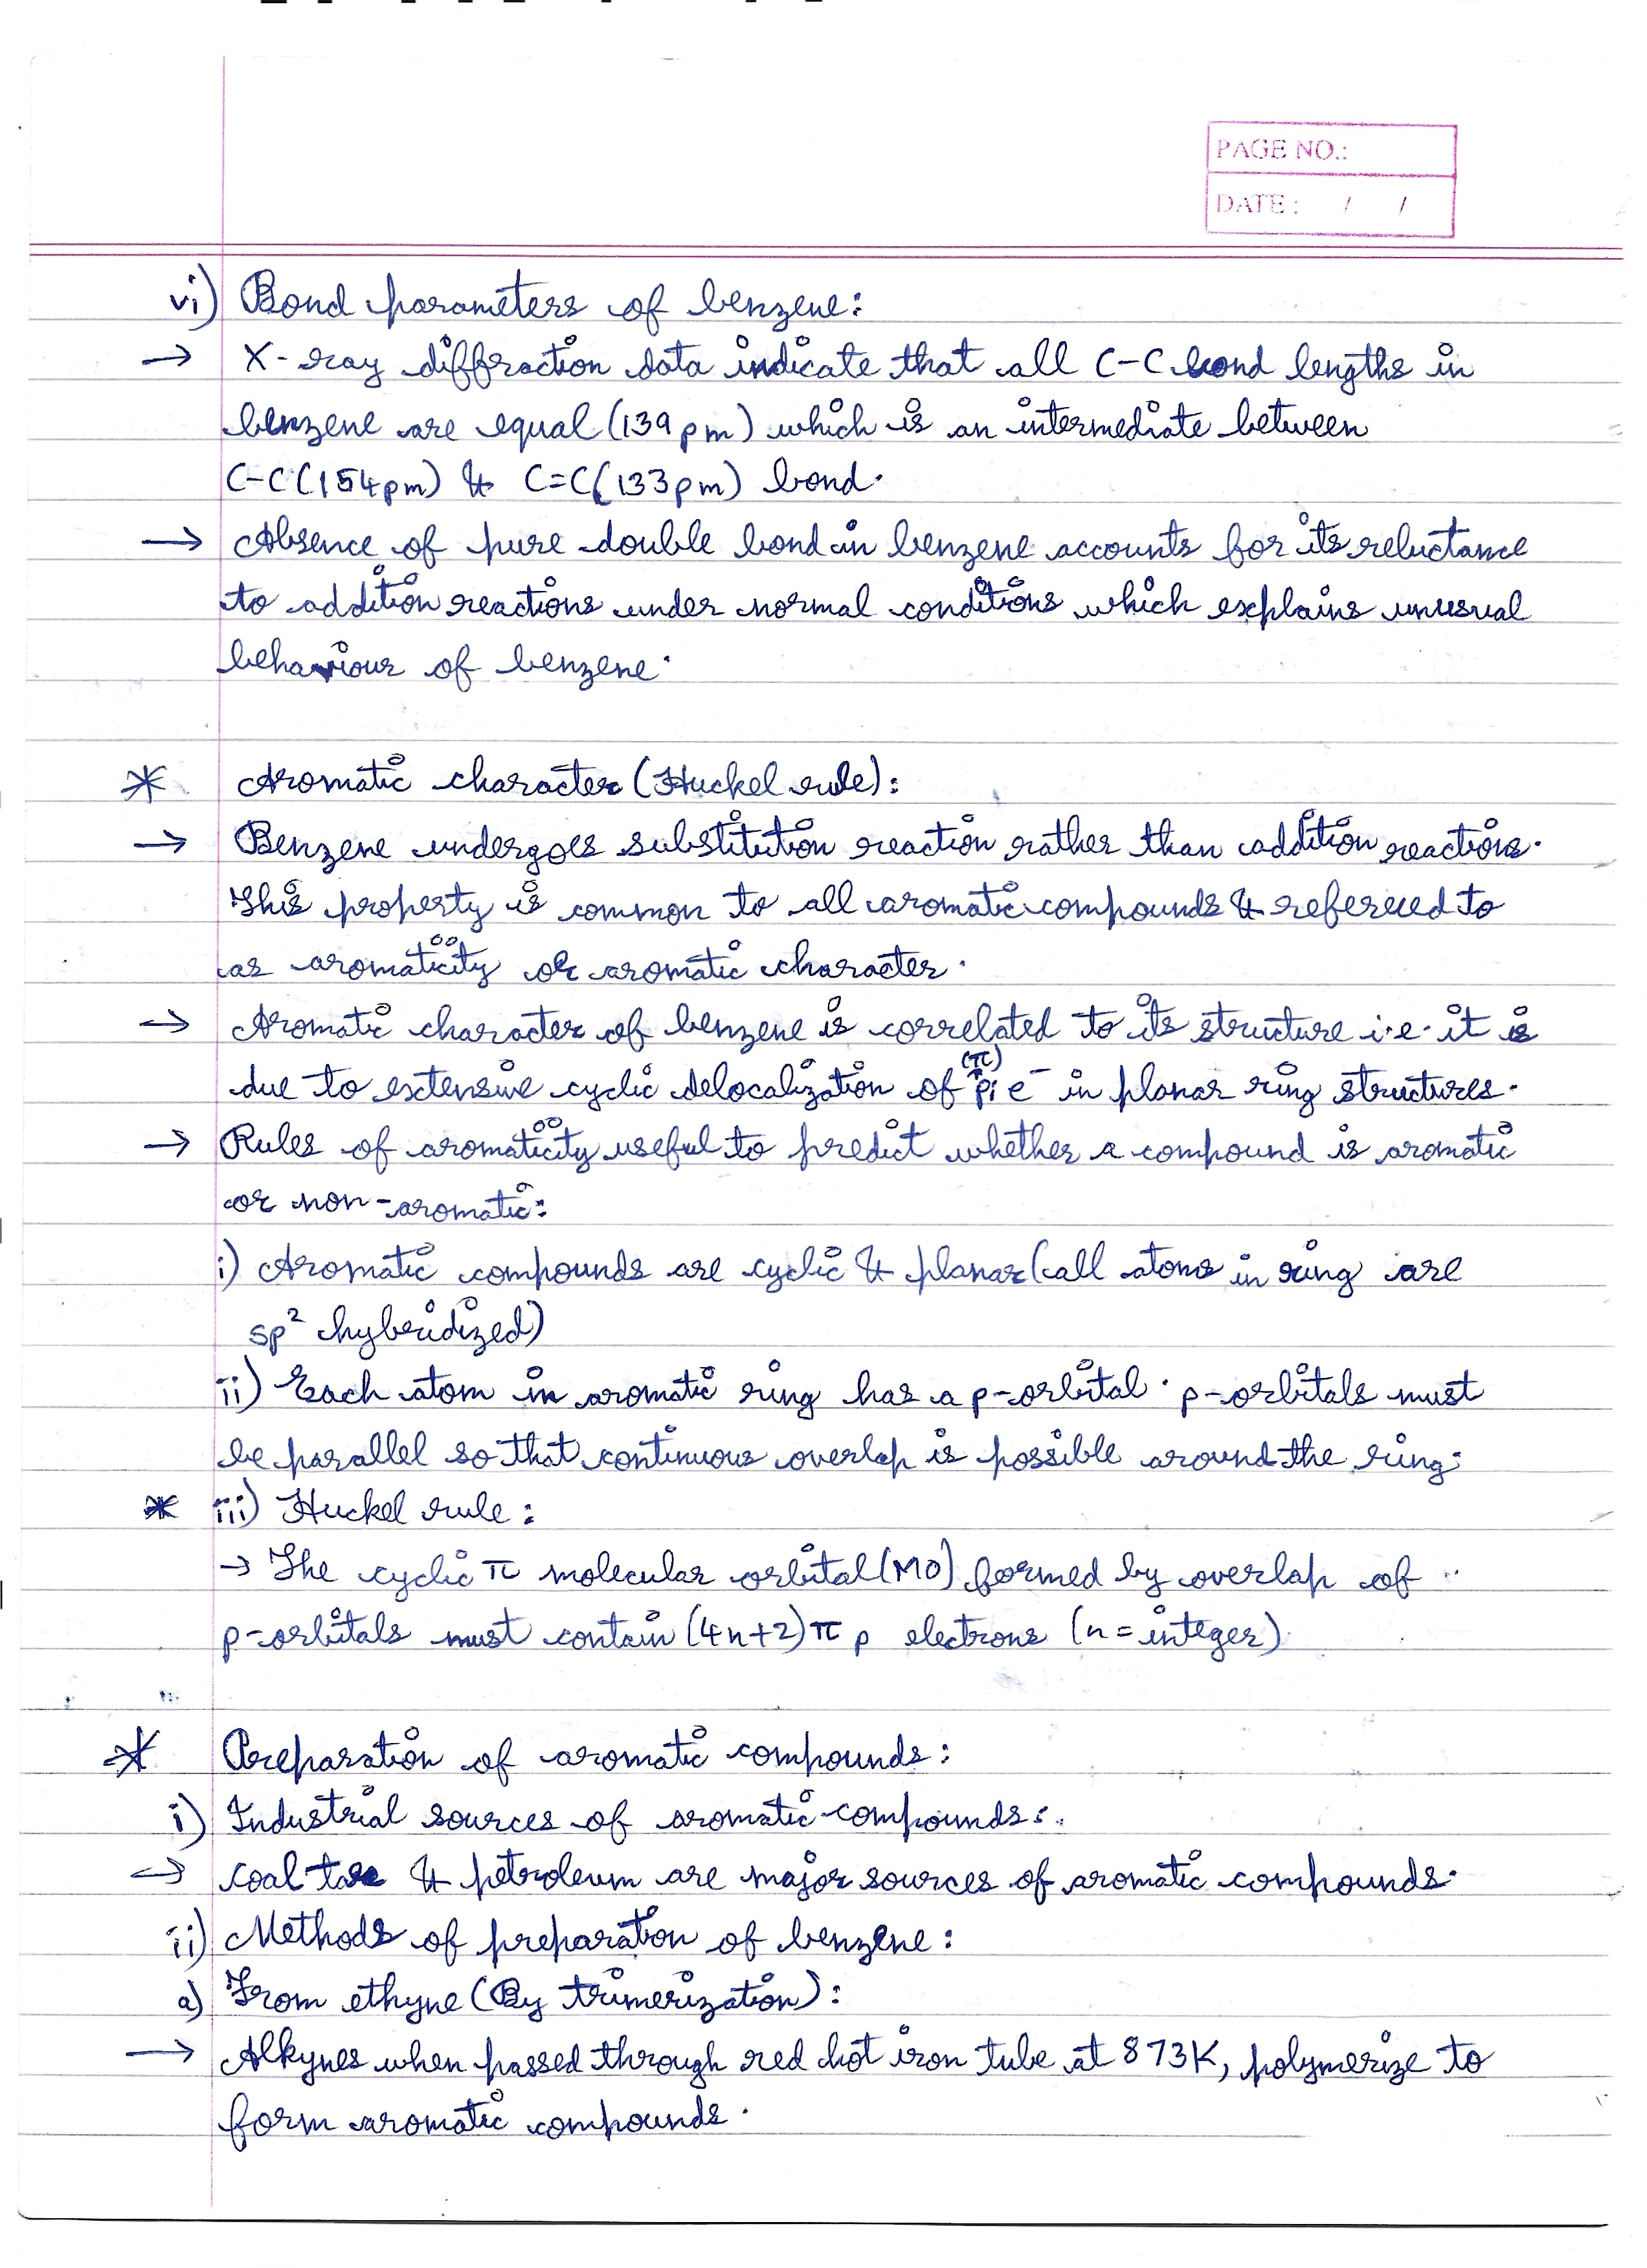 PAGE NO.:
DATE : / /
vi) Bond parameters of benzene:
→ X-ray diffraction data indicate that all C-C bond lengths in
benzene are equal (139pm) which is an intermediate between
C-C (154pm) & C=C (133pm) bond.
→ Absence of pure double bond in benzene accounts for its reluctance
to addition reactions under normal conditions which explains unusual
behaviour of benzene.
* Aromatic character (Huckel rule):
→ Benzene undergoes substitution reaction rather than addition reactions.
This property is common to all aromatic compounds & refereed to
as aromaticity or aromatic character.
→ Aromatic character of benzene is correlated to its structure i.e. it is
(π)
due to extensive cyclic delocalization of pi e⁻ in planar ring structures.
→ Rules of aromaticity useful to predict whether a compound is aromatic
or non-aromatic:
i) Aromatic compounds are cyclic & planar (all atoms in ring are
sp² hyberidized)
ii) Each atom in aromatic ring has a p-orbital. p-orbitals must
be parallel so that continuous overlap is possible around the ring.
* iii) Huckel rule:
→ The cyclic π molecular orbital (MO) formed by overlap of
p-orbitals must contain (4n+2)π p electrons (n = integer)
* Preparation of aromatic compounds:
i) Industrial sources of aromatic compounds:
→ coal tar & petroleum are major sources of aromatic compounds.
ii) Methods of preparation of benzene:
a) From ethyne (By trimerization):
→ Alkynes when passed through red hot iron tube at 873K, polymerize to
form aromatic compounds.